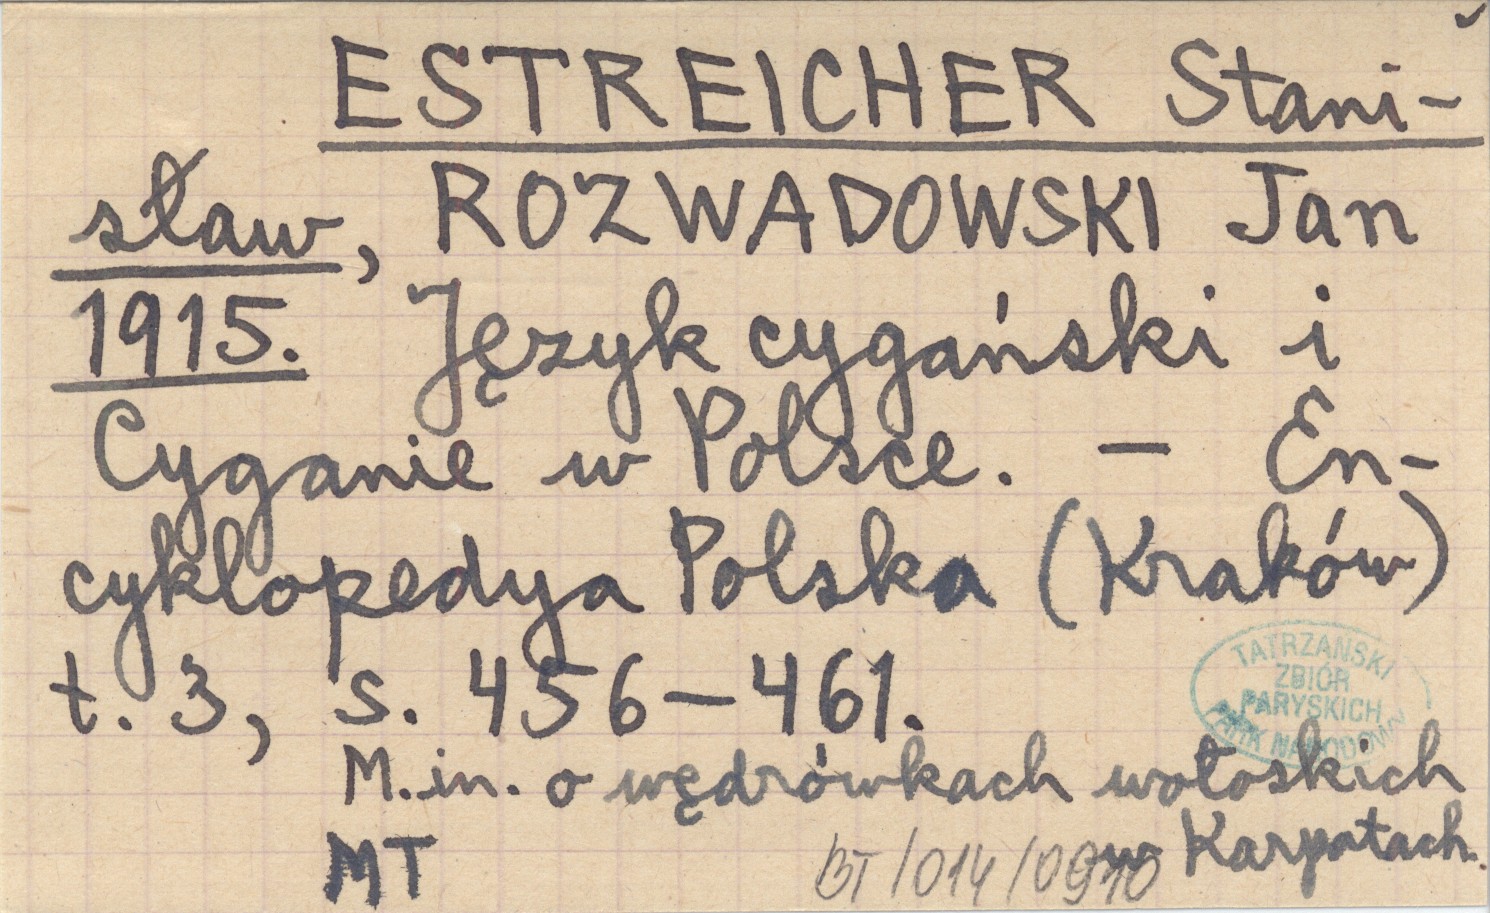 ESTREICHER Stani-
sław, ROZWADOWSKI Jan
1915. Język cygański i
Cyganie w Polsce. — En-
cyklopedya Polska (Kraków)
t. 3, s. 456—461.
TATRZAŃSKI
ZBIÓR
PARYSKICH
PARK NARODOWY
M.in. o wędrówkach wołoskich
w Karpatach.
MT
BT/014/0910